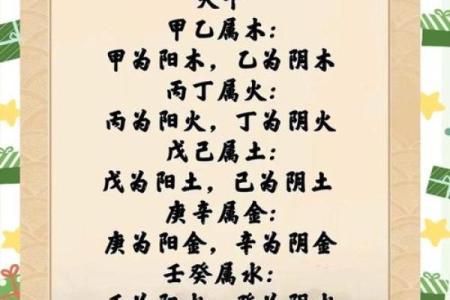 甲乙属木：
甲为阳木，乙为阴木
丙丁属火：
丙为阳火，丁为阴火
戊己属土：
戊为阳土，已为阴土
庚辛属金：
庚为阳金，辛为阴金
壬癸属水：